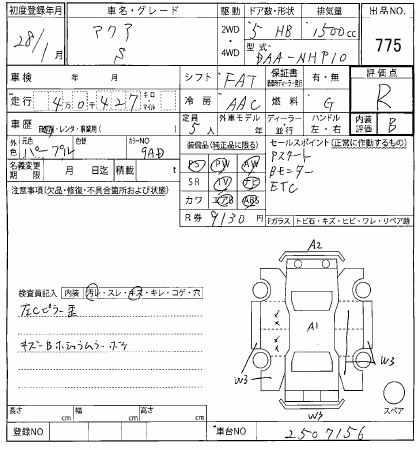 初度登録年月 車名・グレード 駆動 ドア数・形状 排気量 出品NO.
28/1月 アクア S 2WD・4WD 5 HB 1500cc 775
型式 DAA-NHP10
車検 年 月 シフト FAT 保証書 有・無 評価点
走行 4万0千427 キロ マイル 冷房 AAC 燃料 G R
車歴 自家・レンタ・事業用( ) 定員 5人 外車モデル 年 ディーラー 並行 ハンドル 左・右 内装評価 B
外色 元色 パープル 色替 カラーNO 9AD 装備品(純正品に限る) セールスポイント(正常に作動するもの)
名義変更期限 月 日迄 積載 t PS PW AW Pスタート
注意事項(欠品・修復・不具合箇所および状態) SR TV ナビ Bモニター
カワ エアB ABS ETC
R券 9130円 Fガラス トビ石・キズ・ヒビ・ワレ・リペア跡
A2
検査員記入 内装 汚れ・スレ・キズ・キレ・コゲ・穴
左Cピラー歪
A1
W3 W3
W3
スペア
長さ cm 幅 cm 高さ cm
登録NO 車台NO 2507156